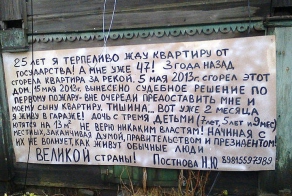 25 ЛЕТ Я ТЕРПЕЛИВО ЖДУ КВАРТИРУ ОТ
ГОСУДАРСТВА! А МНЕ УЖЕ 47! 3 ГОДА НАЗАД
СГОРЕЛА КВАРТИРА ЗА РЕКОЙ. 5 МАЯ 2013г. СГОРЕЛ ЭТОТ
ДОМ. 15 МАЯ 2013г. ВЫНЕСЕНО СУДЕБНОЕ РЕШЕНИЕ ПО
ПЕРВОМУ ПОЖАРУ - ВНЕ ОЧЕРЕДИ ПРЕДОСТАВИТЬ МНЕ И
МОЕМУ СЫНУ КВАРТИРУ, ТИШИНА.. ВОТ УЖЕ 2 МЕСЯЦА
Я ЖИВУ В ГАРАЖЕ! ДОЧЬ С ТРЕМЯ ДЕТЬМИ (7 лет, 5 лет и 9 мес)
ЮТЯТСЯ НА 13 м² НЕ ВЕРЮ НИКАКИМ ВЛАСТЯМ! НАЧИНАЯ С
МЕСТНЫХ, ЗАКАНЧИВАЯ ДУМОЙ, ПРАВИТЕЛЬСТВОМ И ПРЕЗИДЕНТОМ!
ИХ НЕ ВОЛНУЕТ, КАК ЖИВУТ ОБЫЧНЫЕ ЛЮДИ
ВЕЛИКОЙ СТРАНЫ! ПОСТНОВА Н.Ю 89815597989